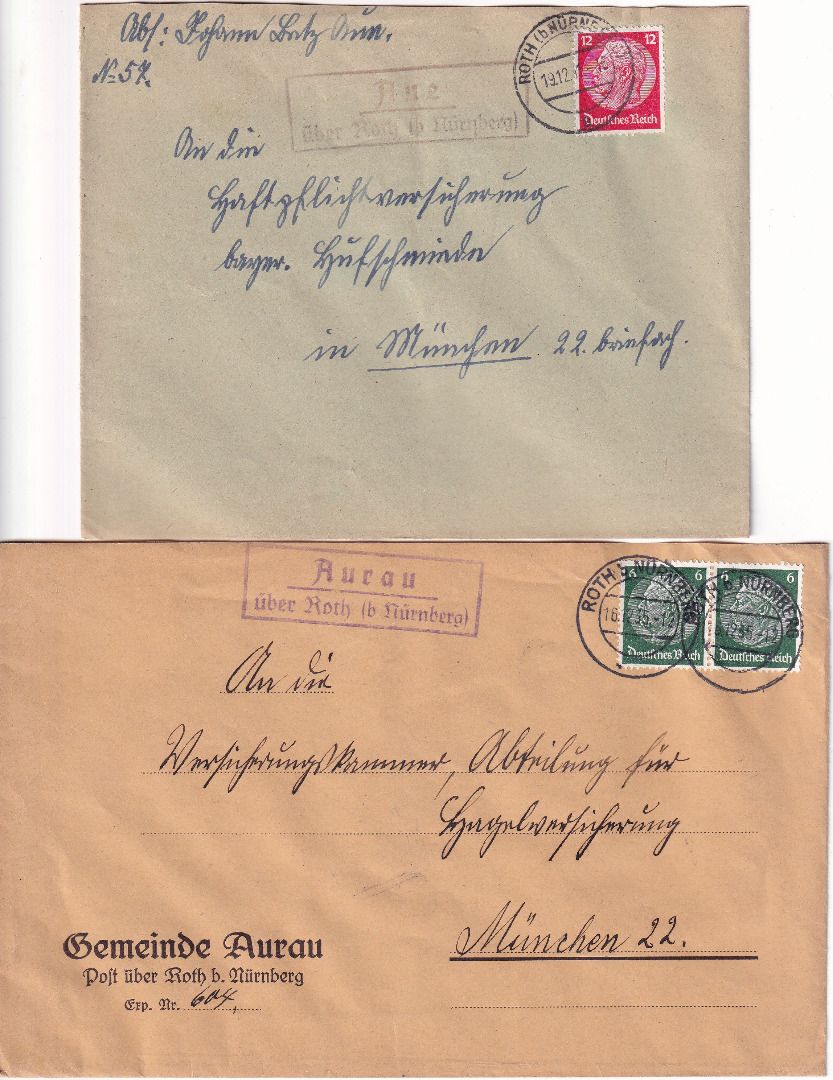 Abs: Johann Betz Aue,
No 57.
Aue
über Roth (b Nürnberg)
ROTH (b NÜRNB
19.12.
12 12
Deutsches Reich
An die
Haftpflichtversicherung
bayer. Hufschmiede
in München 22. briefach.
Aurau
über Roth (b Nürnberg)
ROTH b. NÜRNBERG
ROTH b. NÜRNBERG
6 6
Deutsches Reich Deutsches Reich
An die
Versicherungskammer, Abteilung für
Hagelversicherung
München 22.
Gemeinde Aurau
Post über Roth b. Nürnberg
Exp. Nr. 604,